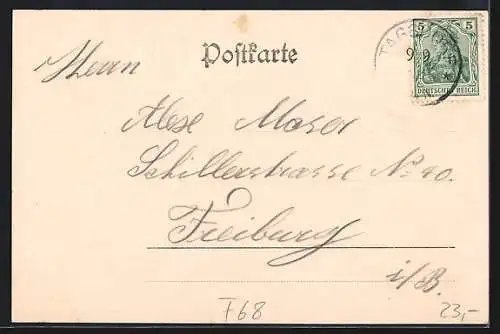 Postkarte
5 5
DEUTSCHES REICH
Herrn
Moser
Schillerstrasse No. 40.
Freiburg
i/B.
F68
23,-